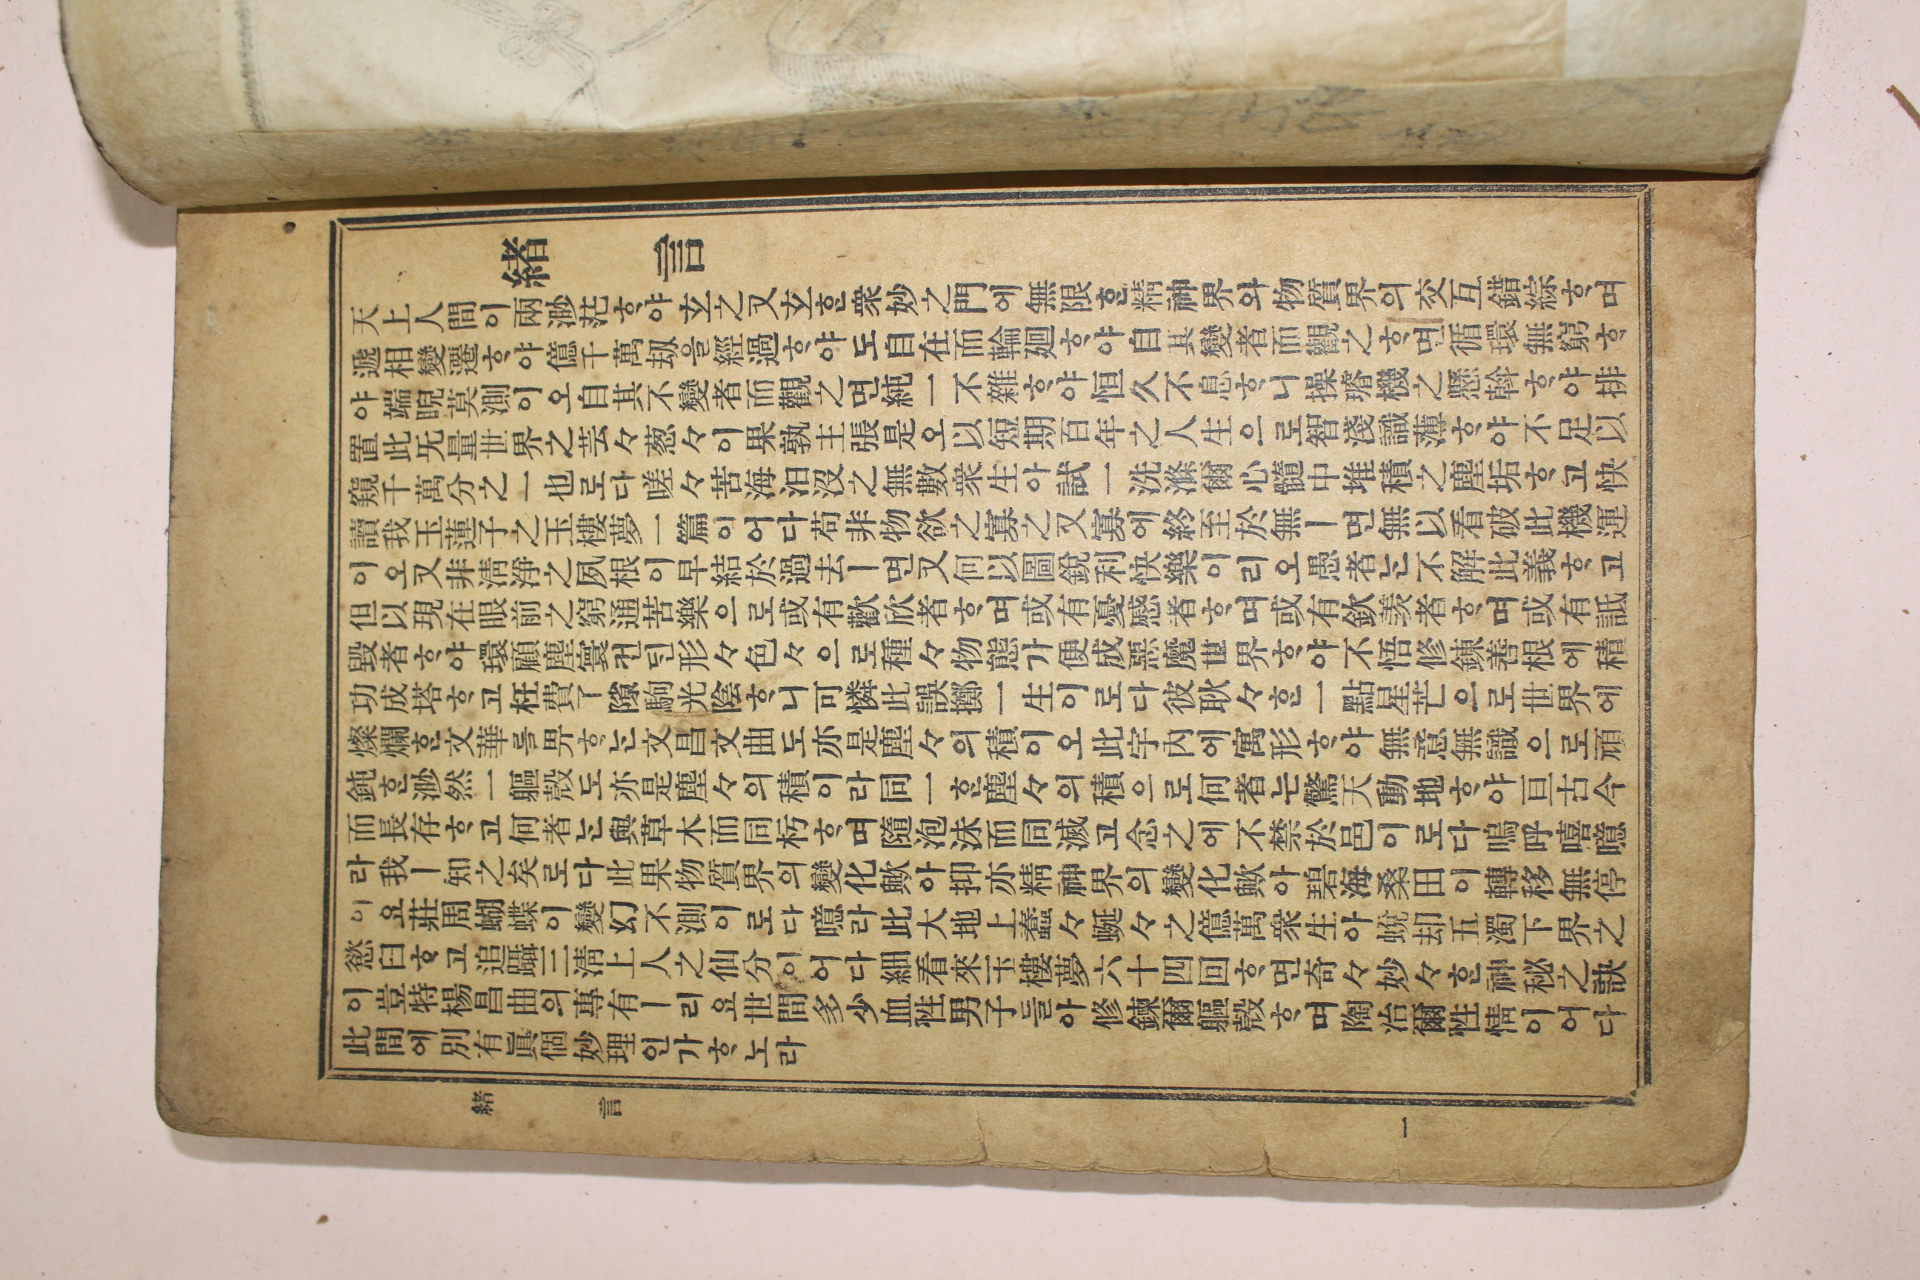 緖言
天上人間이兩渺茫ᄒᆞ야玄之又玄ᄒᆞᆫ衆妙之門에無限ᄒᆞᆫ精神界와物質界의交互錯綜ᄒᆞ며
遞相變遷ᄒᆞ야億千萬劫을經過ᄒᆞ야도自在而輪廻ᄒᆞ야自其變者而觀之ᄒᆞ면循環無窮ᄒᆞ
야端睨莫測이오自其不變者而觀之면純一不雜ᄒᆞ야恒久不息ᄒᆞ니操璿機之懸斡ᄒᆞ야排
置此旡量世界之芸々葱々이果孰主張是오以短期百年之人生으로智淺識薄ᄒᆞ야不足以
窺千萬分之一也로다嗟々苦海汨沒之無數衆生아試一洗滌爾心髓中堆積之塵垢ᄒᆞ고快
讀我玉蓮子之玉樓夢一篇이어다苟非物欲之寡之又寡에終至於無ㅣ면無以看破此機運
이오又非淸淨之夙根이早結於過去ㅣ면又何以圖銳利快樂이리오愚者ᄂᆞᆫ不解此義ᄒᆞ고
但以現在眼前之窮通苦樂으로或有歡欣者ᄒᆞ며或有憂慽者ᄒᆞ며或有欽羨者ᄒᆞ며或有詆
毁者ᄒᆞ야環顧塵寰컨ᄃᆡᆫ形々色々으로種々物態가便成惡魔世界ᄒᆞ야不悟修鍊善根에積
功成塔ᄒᆞ고枉費了隙駒光陰ᄒᆞ니可憐此誤擲一生이로다彼耿々ᄒᆞᆫ一點星芒으로世界에
燦爛ᄒᆞᆫ文華를畀ᄒᆞᄂᆞᆫ文昌文曲도亦是塵々의積이오此宇內에寓形ᄒᆞ야無意無識으로頑
鈍ᄒᆞᆫ渺然一軀殼도亦是塵々의積이라同一ᄒᆞᆫ塵々의積으로何者는驚天動地ᄒᆞ야亘古今
而長存ᄒᆞ고何者ᄂᆞᆫ與草木而同朽ᄒᆞ며隨泡沫而同滅고念之에不禁於邑이로다嗚呼嘻噫
라我ㅣ知之矣로다此果物質界의變化歟아抑亦精神界의變化歟아碧海桑田이轉移無停
이요莊周蝴蝶이變幻不測이로다噫라此大地上蠢々蜒々之億萬衆生아蛻却五濁下界之
慾臼ᄒᆞ고追躡三淸上人之仙分이어다細看來玉樓夢六十四回ᄒᆞ면奇々妙々ᄒᆞᆫ神秘之訣
이豈特楊昌曲의專有ㅣ리요世間多少血性男子들아修鍊爾軀殼ᄒᆞ며陶冶爾性情이어다
此間에別有眞個妙理인가ᄒᆞ노라
緖言
一